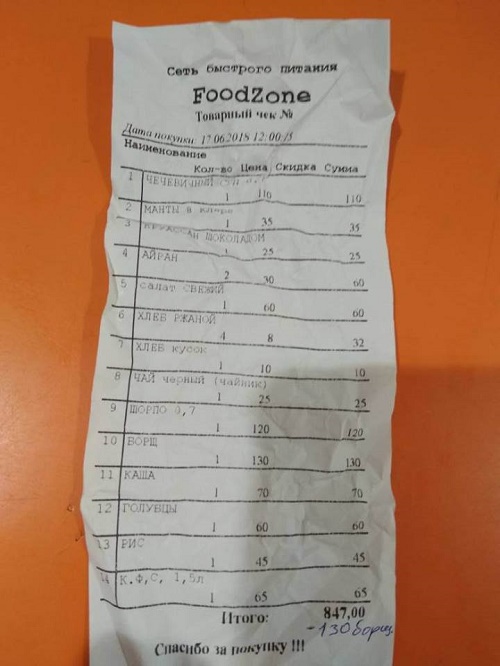 Сеть быстрого питания
FoodZone
Товарный чек №
Дата покупки: 17.06.2018 12:00:
Наименование
Кол-во Цена Скидка Сумма
1 ЧЕЧЕВИЧНЫЙ
1 110 110
2 МАНТЫ в кляре
1 35 35
3 ШОКОЛАДОМ
1 25 25
4 АЙРАН
2 30 60
5 салат СВЕЖИЙ
1 60 60
6 ХЛЕБ РЖАНОЙ
4 8 32
7 ХЛЕБ кусок
1 10 10
8 ЧАЙ черный (чайник)
1 25 25
9 ШОРПО 0,7
1 120 120
10 БОРЩ
1 130 130
11 КАША
1 70 70
12 ГОЛУБЦЫ
1 60 60
13 РИС
1 45 45
14 К.Ф,С, 1,5л
1 65 65
Итого: 847,00
-130 борщ.
Спасибо за покупку !!!